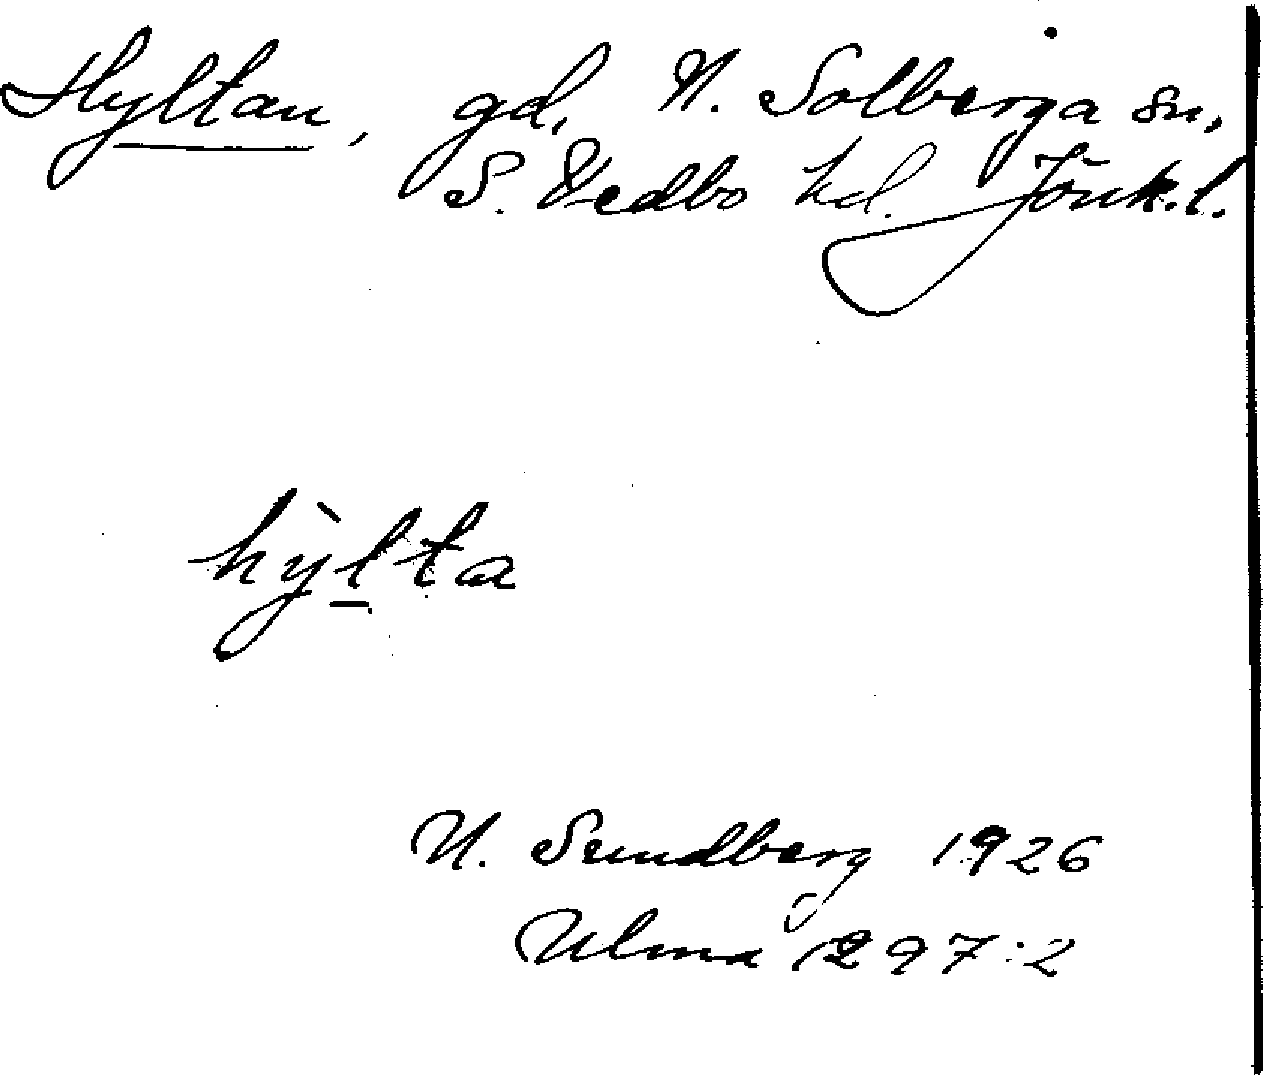 Hyltan, gd, N. Solberga sn,
S. Vedbo hd. Jönk.l.
hỳlta
N. Sundberg 1926
Ulma 1297:2